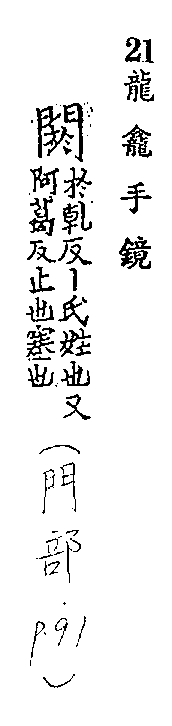 21龍龕手鏡
閼
於乹反丨氏姓也又
阿葛反止也塞也
(門部 p.91)